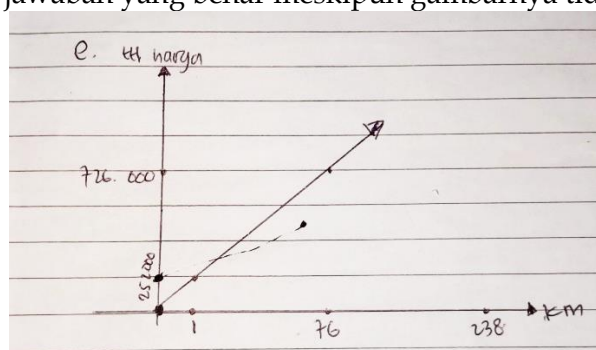 jawaban yang benar meskipun gambarnya
e. harga
726.000
252000
1 76 238 km